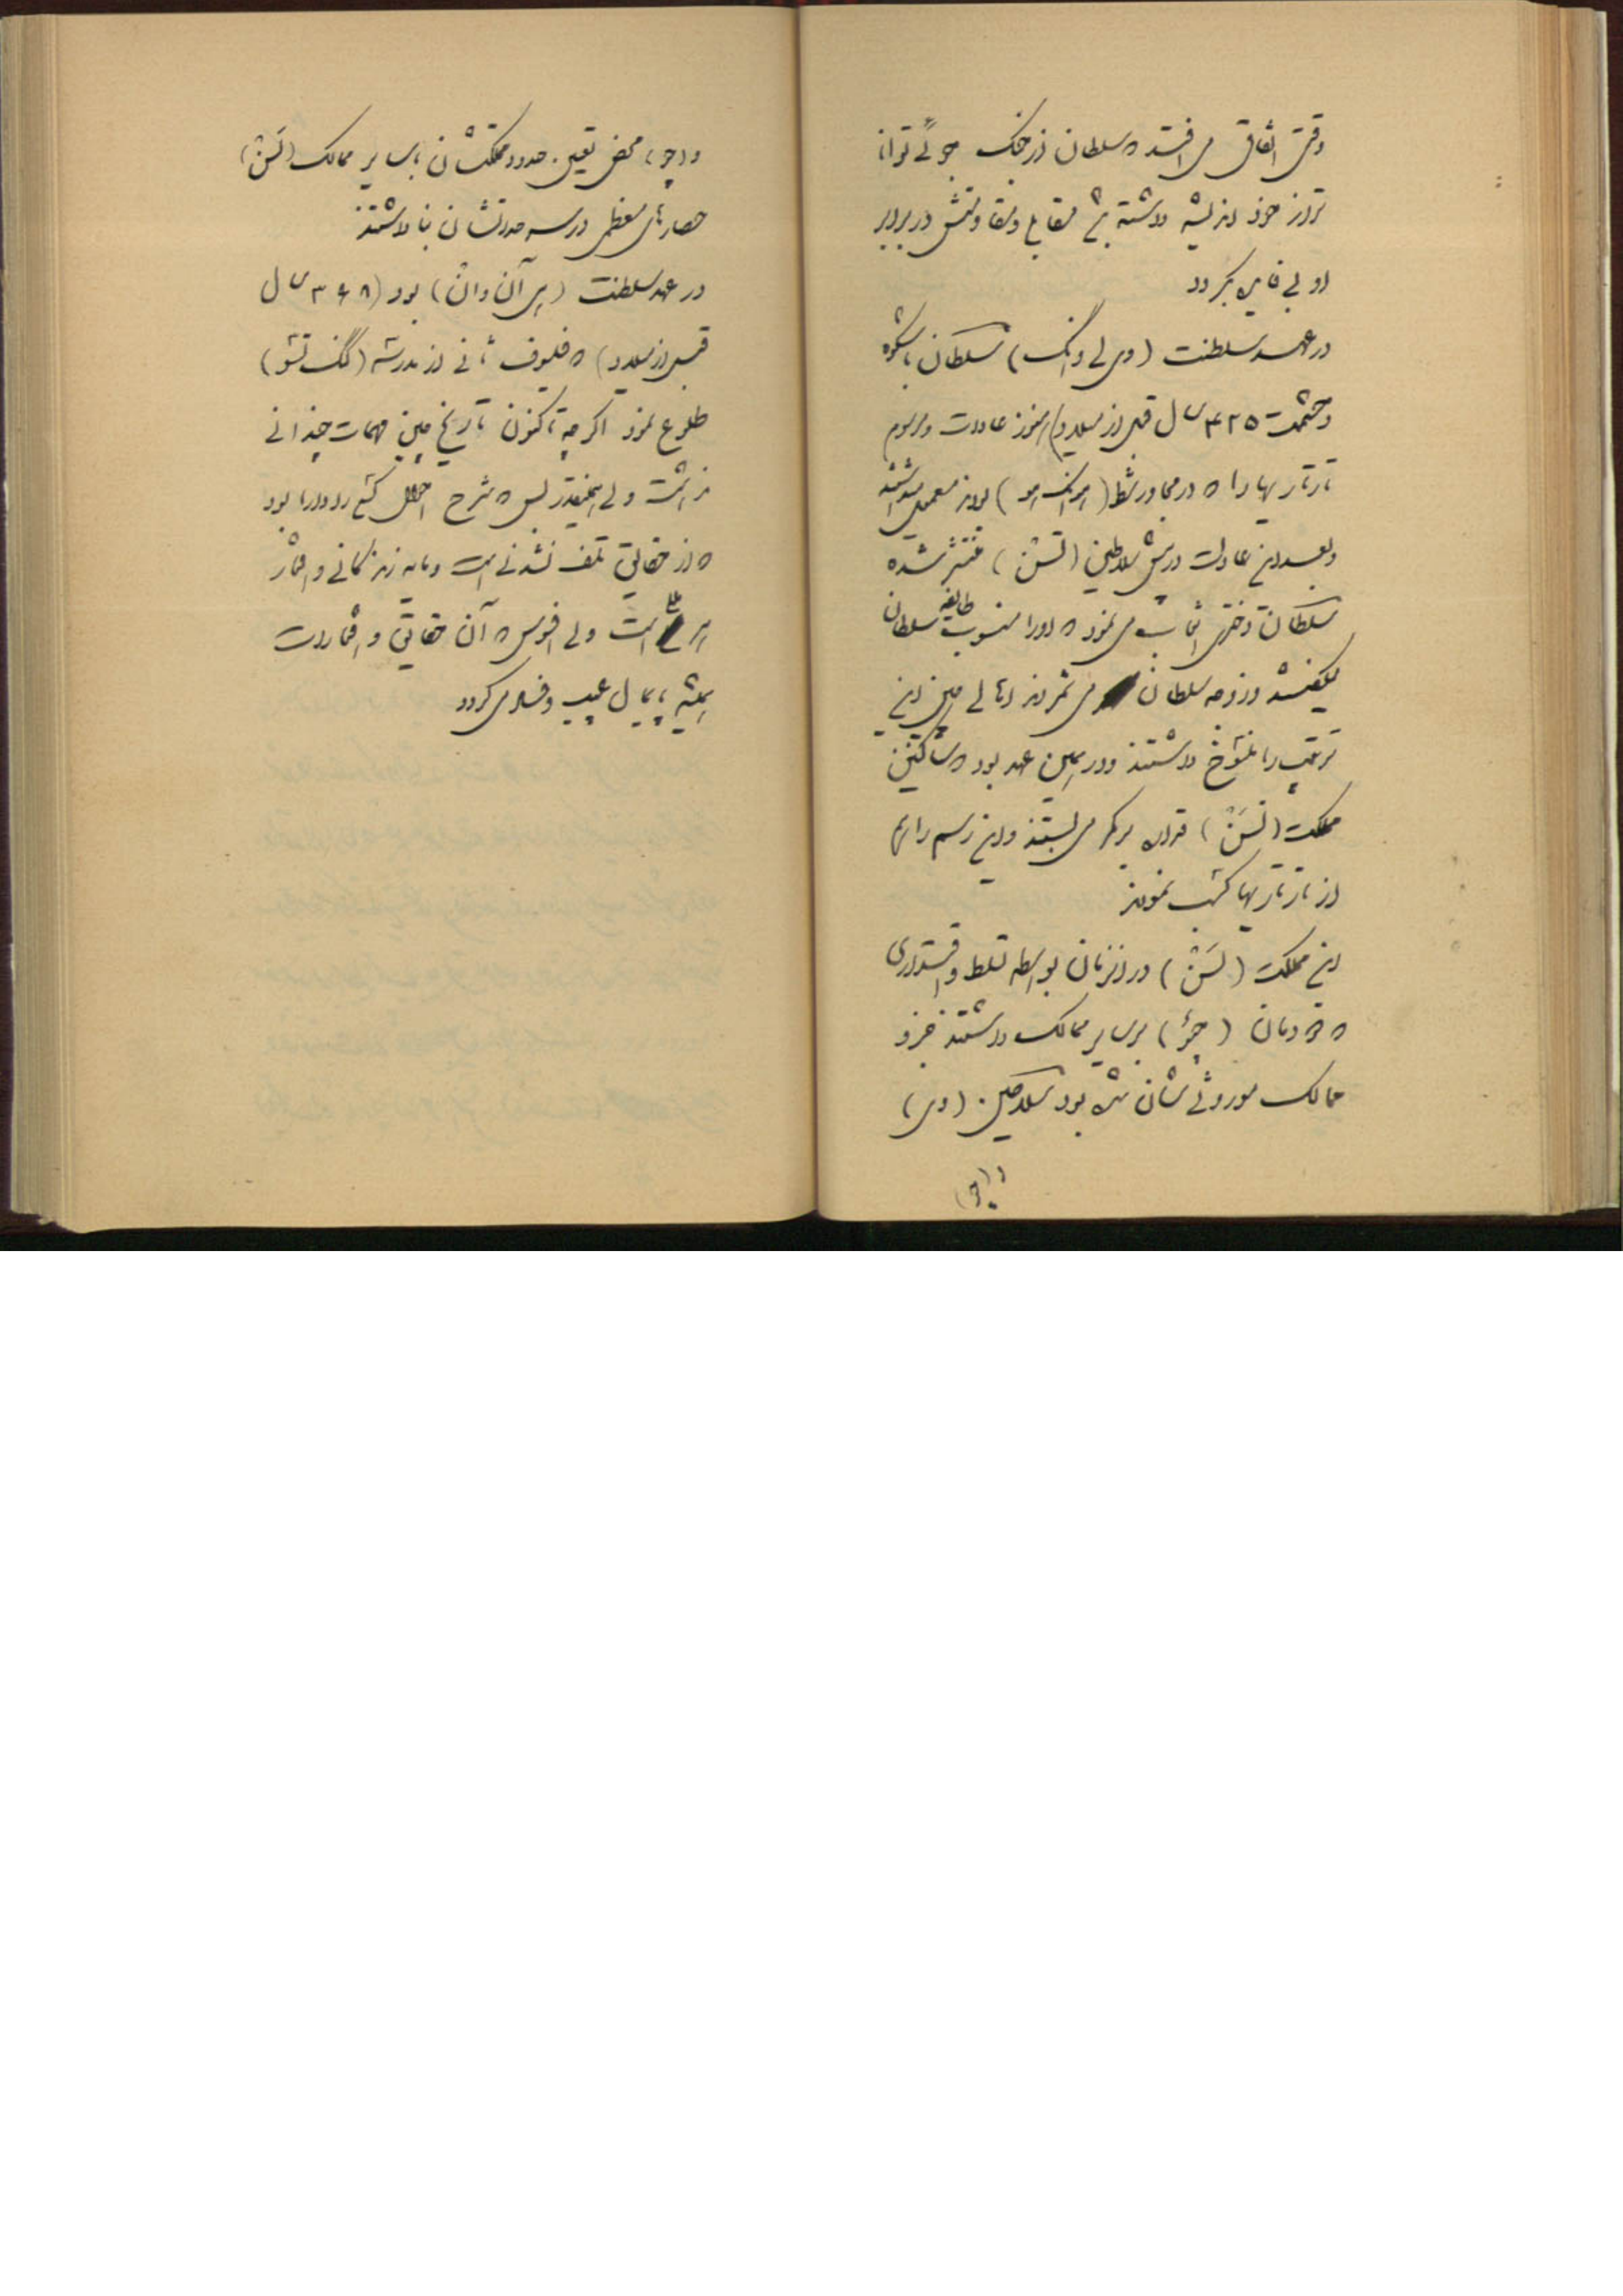 وقتی اتفاق می افتد که سلطان از جنگ جوئی توانا
تر از خود اندیشه داشته
او بی فایده گردد
در عهد سلطنت (وی لی وانگ) سلطان با شکوه
و حشمت ۴۲۵ سال قبل از میلاد) هنوز عادات و رسوم
تارتاریها را که در مجاور شط بودند معمول میداشتند
و بعد این عادات در پیش سلاطین (تسن) منتشر شده
سلطان دختری انتخاب می نمود که او را منسوب طایفه سلطان
میگفتند و زوجه سلطان می شمردند اهالی چین این
ترتیب را منسوخ داشتند و در همین عهد بود که ساکنین
مملکت (تسن) بر کمر می بستند و این رسم را هم
از تارتاریها کسب نمودند
این مملکت (تسن) در آنزمان بواسطه تسلط و اقتداری
که بر سایر ممالک داشتند جزو
ممالک موروثی شان شده بود سلاطین (وی)
و (چو)
و (چو) محض تعیین حدود مملکتشان با سایر ممالک (تسن)
حصارهای معظمی در سرحداتشان بنا داشتند
در عهد سلطنت بود (۳۶۸ سال
قبل از میلاد) که فیلسوف ثانی از مدرسه
طلوع نمود اگر چه تا کنون تاریخ چین مهمات چندانی
نداشت ولی همینقدر بس که شرح را دارا بود
که از حقایق تلف نشدنی است و مایه زندگانی و افتخار
هر است ولی افسوس که آن حقایق و افتخارات
همیشه پایمال عیب و فساد می گردد